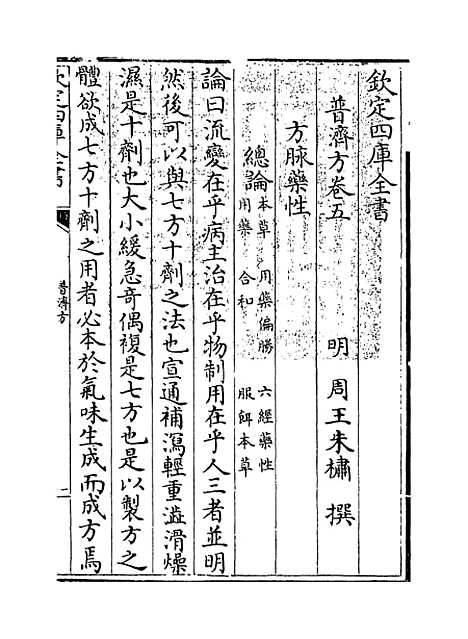 欽定四庫全書
普濟方卷五
明 周王朱橚 撰
方脉藥性
總論 本草 用藥偏勝 六經藥性
用藥 合和 服餌本草
論曰流變在乎病主治在乎物制用在乎人三者並明
然後可以與七方十劑之法也宣通補瀉輕重澁滑燥
濕是十劑也大小緩急奇偶複是七方也是以製方之
體欲成七方十劑之用者必本於氣味生成而成方焉
欽定四庫全書
普濟方
二